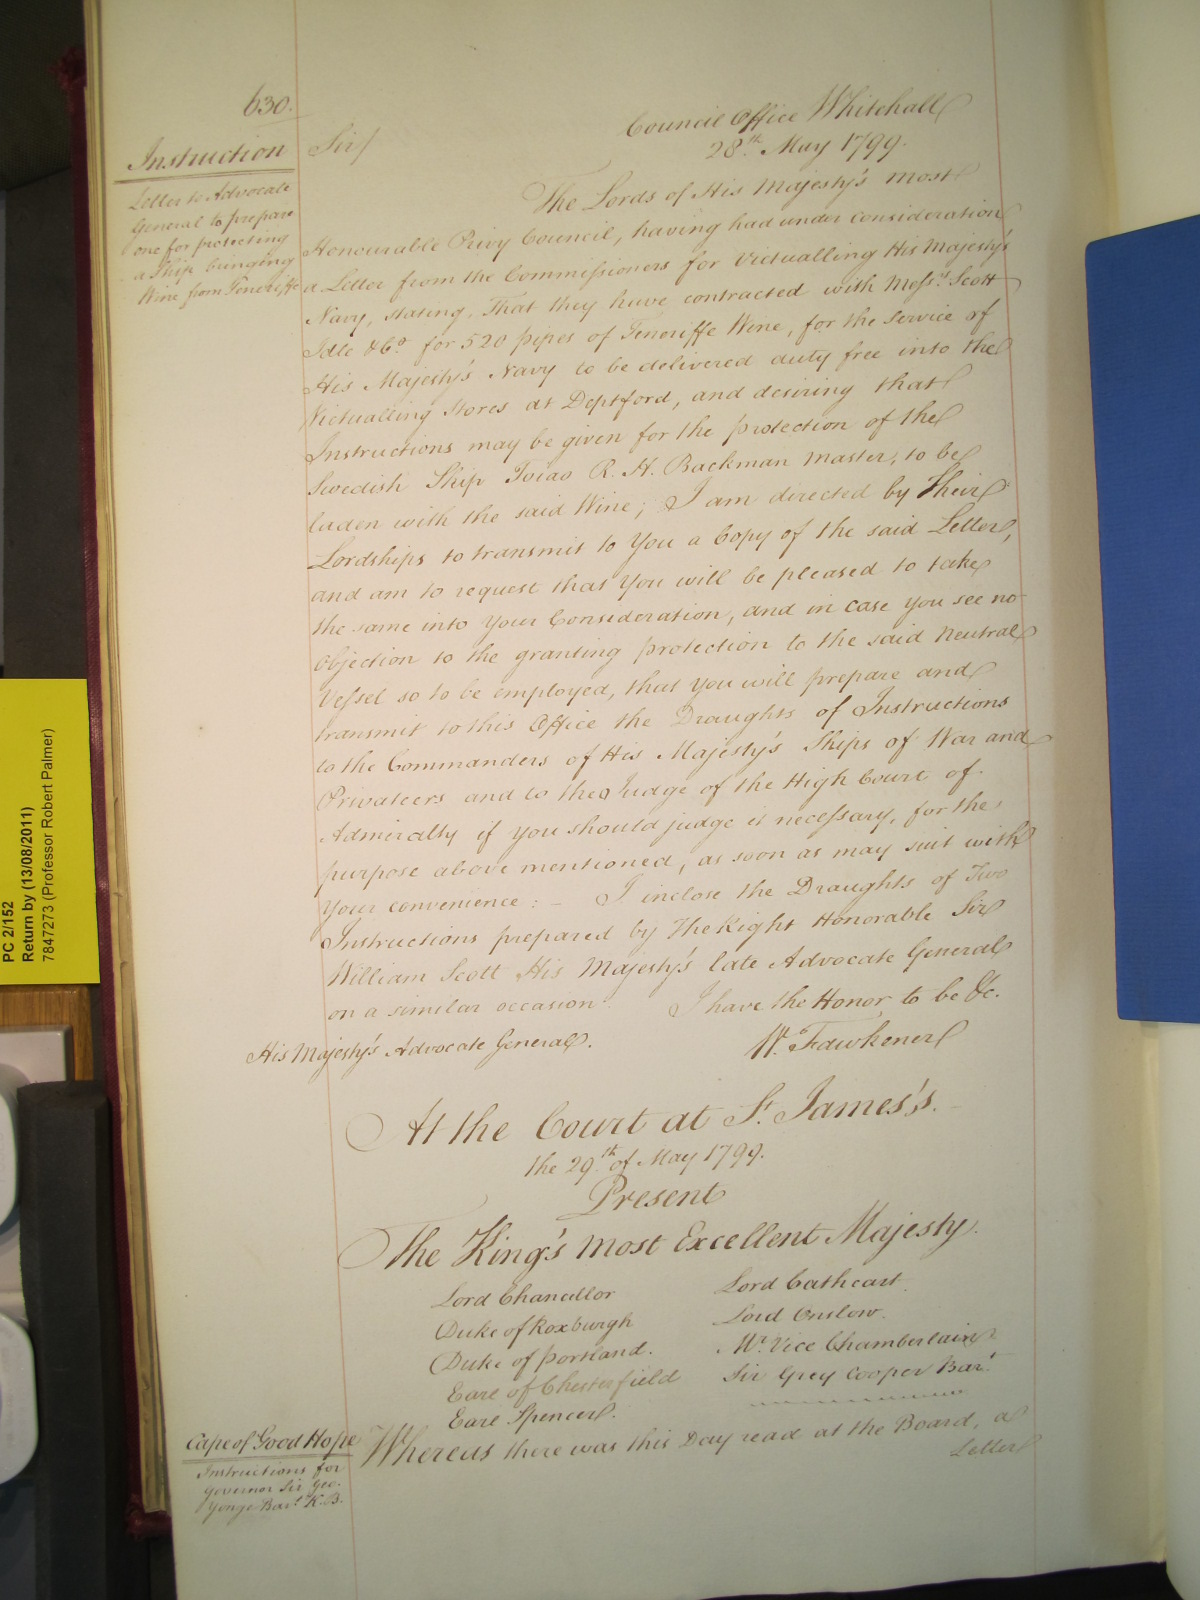 630.
Council Office Whitehall
28th. May 1799.
Instruction
Letter to Advocate
General to prepare
one for protecting
a Ship bringing
Wine from Teneriffe
Sir/
The Lords of His Majesty's most
Honourable Privy Council, having had under consideration
a Letter from the Commissioners for Victualling His Majesty's
Navy, stating, That they have contracted with Messrs. Scott
Idle & Co. for 520 pipes of Teneriffe Wine, for the Service of
His Majesty's Navy to be delivered duty free into the
Victualling Stores at Deptford, and desiring that
Instructions may be given for the protection of the
Swedish Ship R. H. Backman Master, to be
laden with the said Wine; I am directed by Their
Lordships to transmit to You a Copy of the said Letter,
and am to request that You will be pleased to take
the same into Your Consideration, and in case you see no
Objection to the granting protection to the said Neutral
Vessel so to be employed, that you will prepare and
transmit to this Office the Draughts of Instructions
to the Commanders of His Majesty's Ships of War and
Privateers and to the Judge of the High Court of
Admiralty if you should judge it necessary, for the
purpose above mentioned, as soon as may suit with
Your convenience: - I inclose the Draughts of Two
Instructions prepared by The Right Honorable Sir
William Scott His Majesty's late Advocate General
on a similar occasion. I have the Honor to be &c.
His Majesty's Advocate General.
W. Fawkener
At the Court at St. James's.
the 29th. of May 1799.
Present
The King's most Excellent Majesty.
Lord Chancellor
Duke of Roxburgh
Duke of Portland.
Earl of Chesterfield
Earl Spencer.
Lord Cathcart
Lord Onslow.
Mr. Vice Chamberlain
Sir Grey Cooper Bart.
Cape of Good Hope
Instructions for
Governor Sir Geo.
Yonge Bart. K.B.
Whereas there was this Day read at the Board, a
Letter
PC 2/152
Return by (13/08/2011)
7847273 (Professor Robert Palmer)